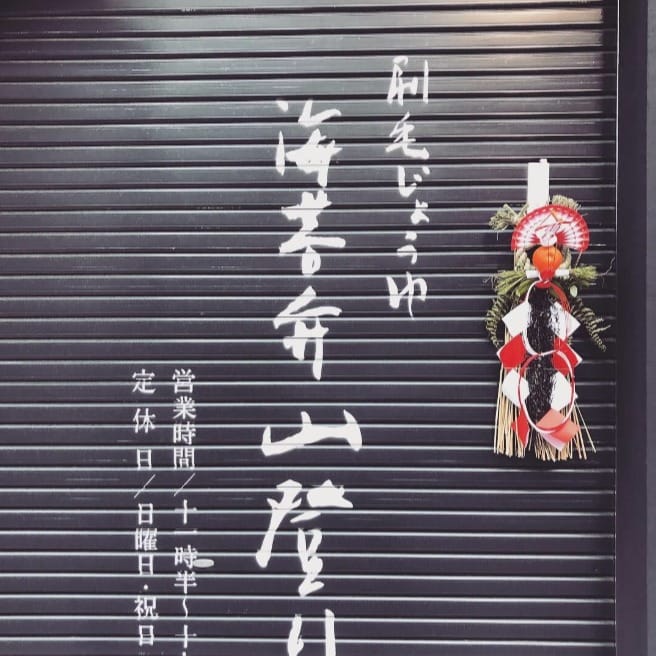 刷毛じょうゆ
海苔弁山登り
営業時間/十一時半〜十
定休日/日曜日・祝日